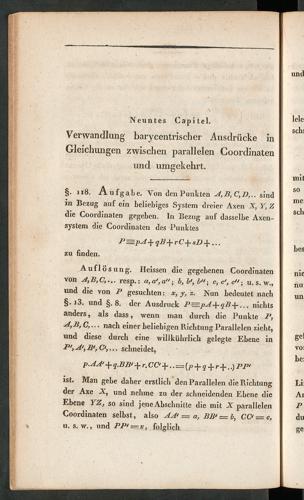 Neuntes Capitel.
Verwandlung barycentrischer Ausdrücke in
Gleichungen zwischen parallelen Coordinaten
und umgekehrt.
§. 118. Aufgabe. Von den Punkten A, B, C, D, .. sind
in Bezug auf ein beliebiges System dreier Axen X, Y, Z
die Coordinaten gegeben. In Bezug auf dasselbe Axen-
system die Coordinaten des Punktes
P≡pA+qB+rC+sD+...
zu finden.
Auflösung. Heissen die gegebenen Coordinaten
von A, B, C, ... resp.: a, a', a''; b, b', b''; c, c', c''; u. s. w.,
und die von P gesuchten: x, y, z. Nun bedeutet nach
§. 13. und §. 8. der Ausdruck P≡pA+qB+... nichts
anders, als dass, wenn man durch die Punkte P,
A, B, C, ... nach einer beliebigen Richtung Parallelen zieht,
und diese durch eine willkührlich gelegte Ebene in
P', A', B', C', ... schneidet,
p.AA'+q.BB'+r.CC'+..=(p+q+r+..)PP'
ist. Man gebe daher erstlich den Parallelen die Richtung
der Axe X, und nehme zu der schneidenden Ebene die
Ebene YZ, so sind jene Abschnitte die mit X parallelen
Coordinaten selbst, also AA'=a, BB'=b, CC'=c,
u. s. w., und PP'=x, folglich